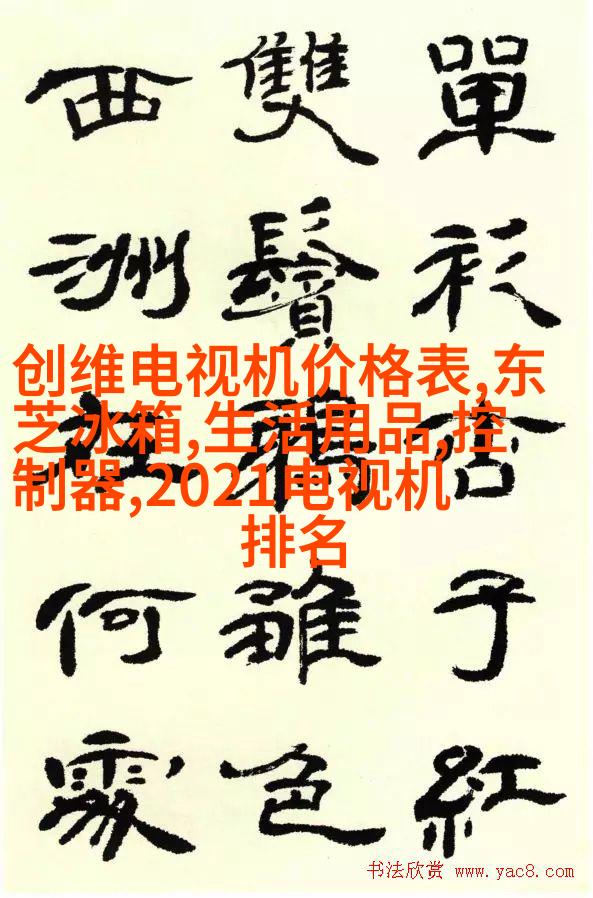 單衫杏子紅
雙鬢鴉雛色
西洲在何處
创维电视机价格表,东
芝冰箱,生活用品,控
制器,2021电视机
排名
书法欣赏 www.yac8.com